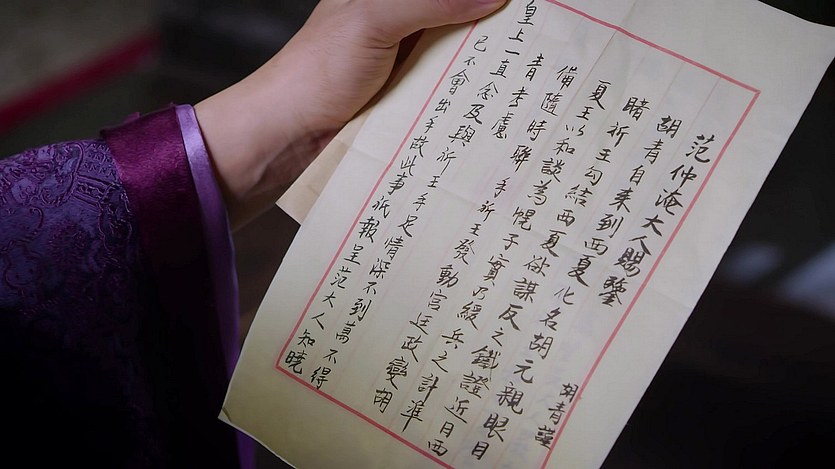 范仲淹大人賜鑒
胡青謹
胡青自来到西夏化名胡元親眼目
睹祈王勾结西夏欲謀反之鐵證近日西
夏王以和談為幌子實乃緩兵之計準
備隨時聯手祈王發動宮廷政變胡
青考慮
皇上一直念及與祈王手足情深不到萬不得
已不會出手故此事祇報呈范大人知曉